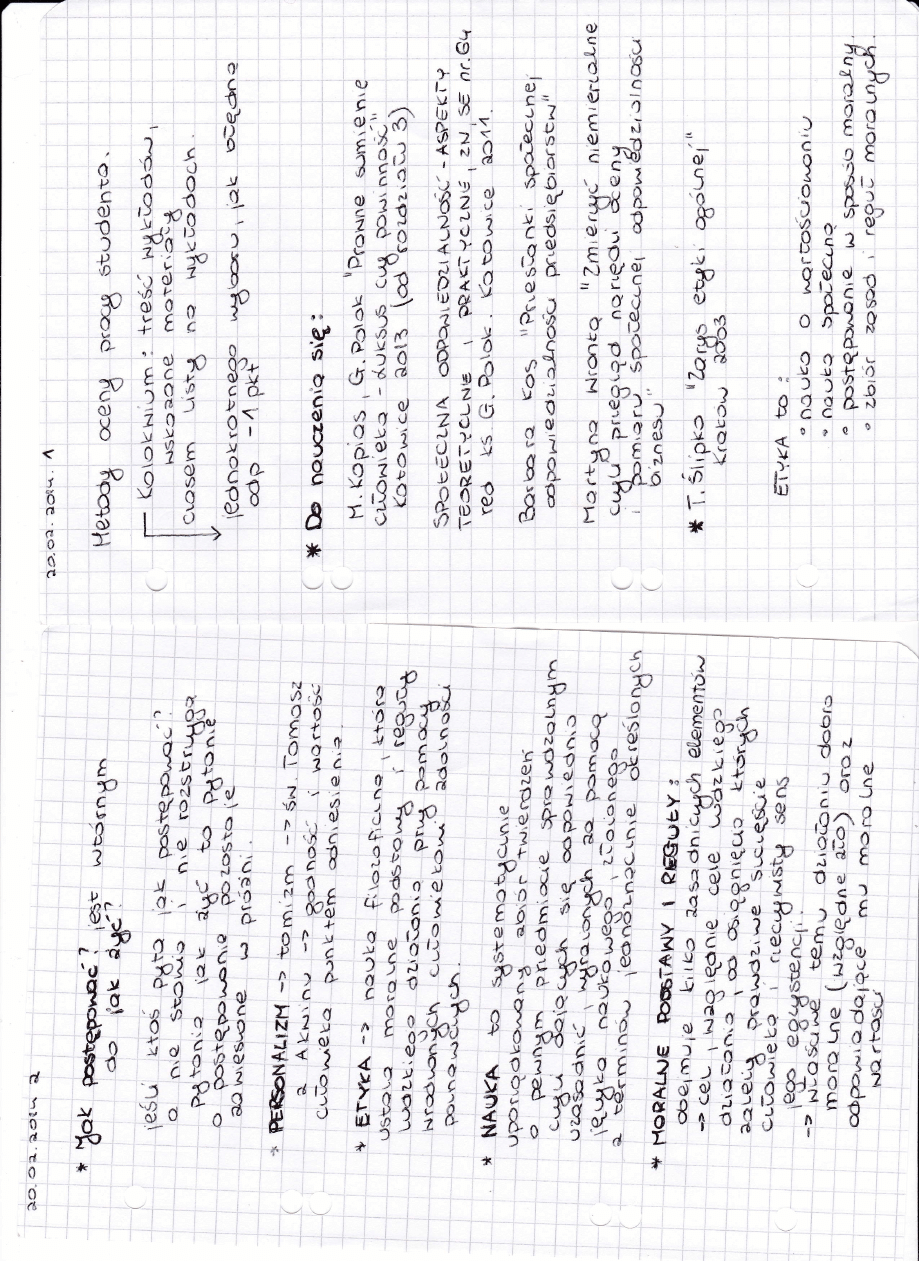 20.02.2014. 1
Metody oceny pracy studenta.
Kolokwium: treść wykładów,
wskazane materiały
czasem listy na wykładach.
jednokrotnego wyboru, jak błędna
odp -1 pkt
* Do nauczenia się:
M. Kopias, G. Polok "Prawne sumienie
człowieka - luksus czy powinność"
Katowice 2013 (od rozdziału 3)
SPOŁECZNA ODPOWIEDZIALNOŚĆ - ASPEKTY
TEORETYCZNE I PRAKTYCZNE, ZN, SE nr.64
red ks. G. Polok. Katowice 2011.
Barbara Kos "Przesłanki społecznej
odpowiedzialności przedsiębiorstw"
Martyna Wronka "Zmierzyć niemierzalne
czyli przegląd narzędzi oceny
i pomiaru społecznej odpowiedzialności
biznesu"
* T. Ślipko "Zarys etyki ogólnej"
Kraków 2003
ETYKA to:
• nauka o wartościowaniu
• nauka społeczna
• postępowanie w sposób moralny
• zbiór zasad i reguł moralnych.
20.02.2014 2
* Jak postępować? jest wtórnym
do jak żyć?
jeśli ktoś pyta jak postępować?
a nie stawia i nie rozstrzyga
pytania jak żyć to pytanie
o postępowanie pozostaje
zawieszone w próżni.
* PERSONALIZM -> tomizm -> św. Tomasz
z Akwinu -> godność i wartość
człowieka punktem odniesienia.
* ETYKA -> nauka filozoficzna, która
ustala moralne podstawy i reguły
ludzkiego działania przy pomocy
wrodzonych człowiekowi zdolności
poznawczych.
* NAUKA to systematycznie
uporządkowany zbiór twierdzeń
o pewnym przedmiocie sprawdzalnym
czyli dających się odpowiednio
uzasadnić i wyrażonych za pomocą
języka naukowego, złożonego
z terminów jednoznacznie określonych
* MORALNE PODSTAWY I REGUŁY:
obejmuje kilka zasadniczych elementów
-> cel, względnie cele ludzkiego
działania, od osiągnięcia których
zależy prawdziwe szczęście
człowieka i rzeczywisty sens
jego egzystencji.
-> właściwe temu działaniu dobro
moralne (względne zło) oraz
odpowiadające mu moralne
wartości